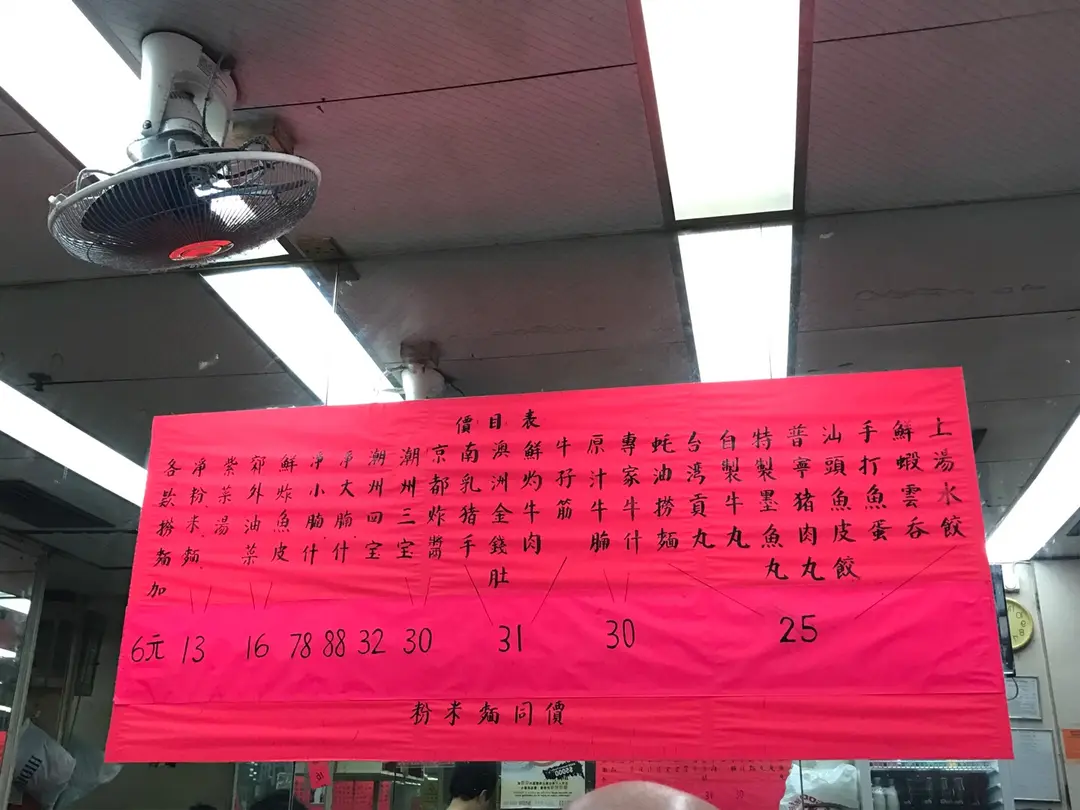 價目表
上湯水餃
鮮蝦雲吞
手打魚蛋
汕頭魚皮餃
普寧豬肉丸
特製墨魚丸
自製牛丸
台灣貢丸
蚝油撈麵
專家牛什
原汁牛腩
牛孖筋
鮮灼牛肉
澳洲金錢肚
南乳猪手
京都炸醬
潮州三宝
潮州四宝
净大腩什
净小腩什
鮮炸魚皮
郊外油菜
紫菜湯
净粉米麵
各款撈麵加
6元 13 16 78 88 32 30 31 30 25
粉米麵同價